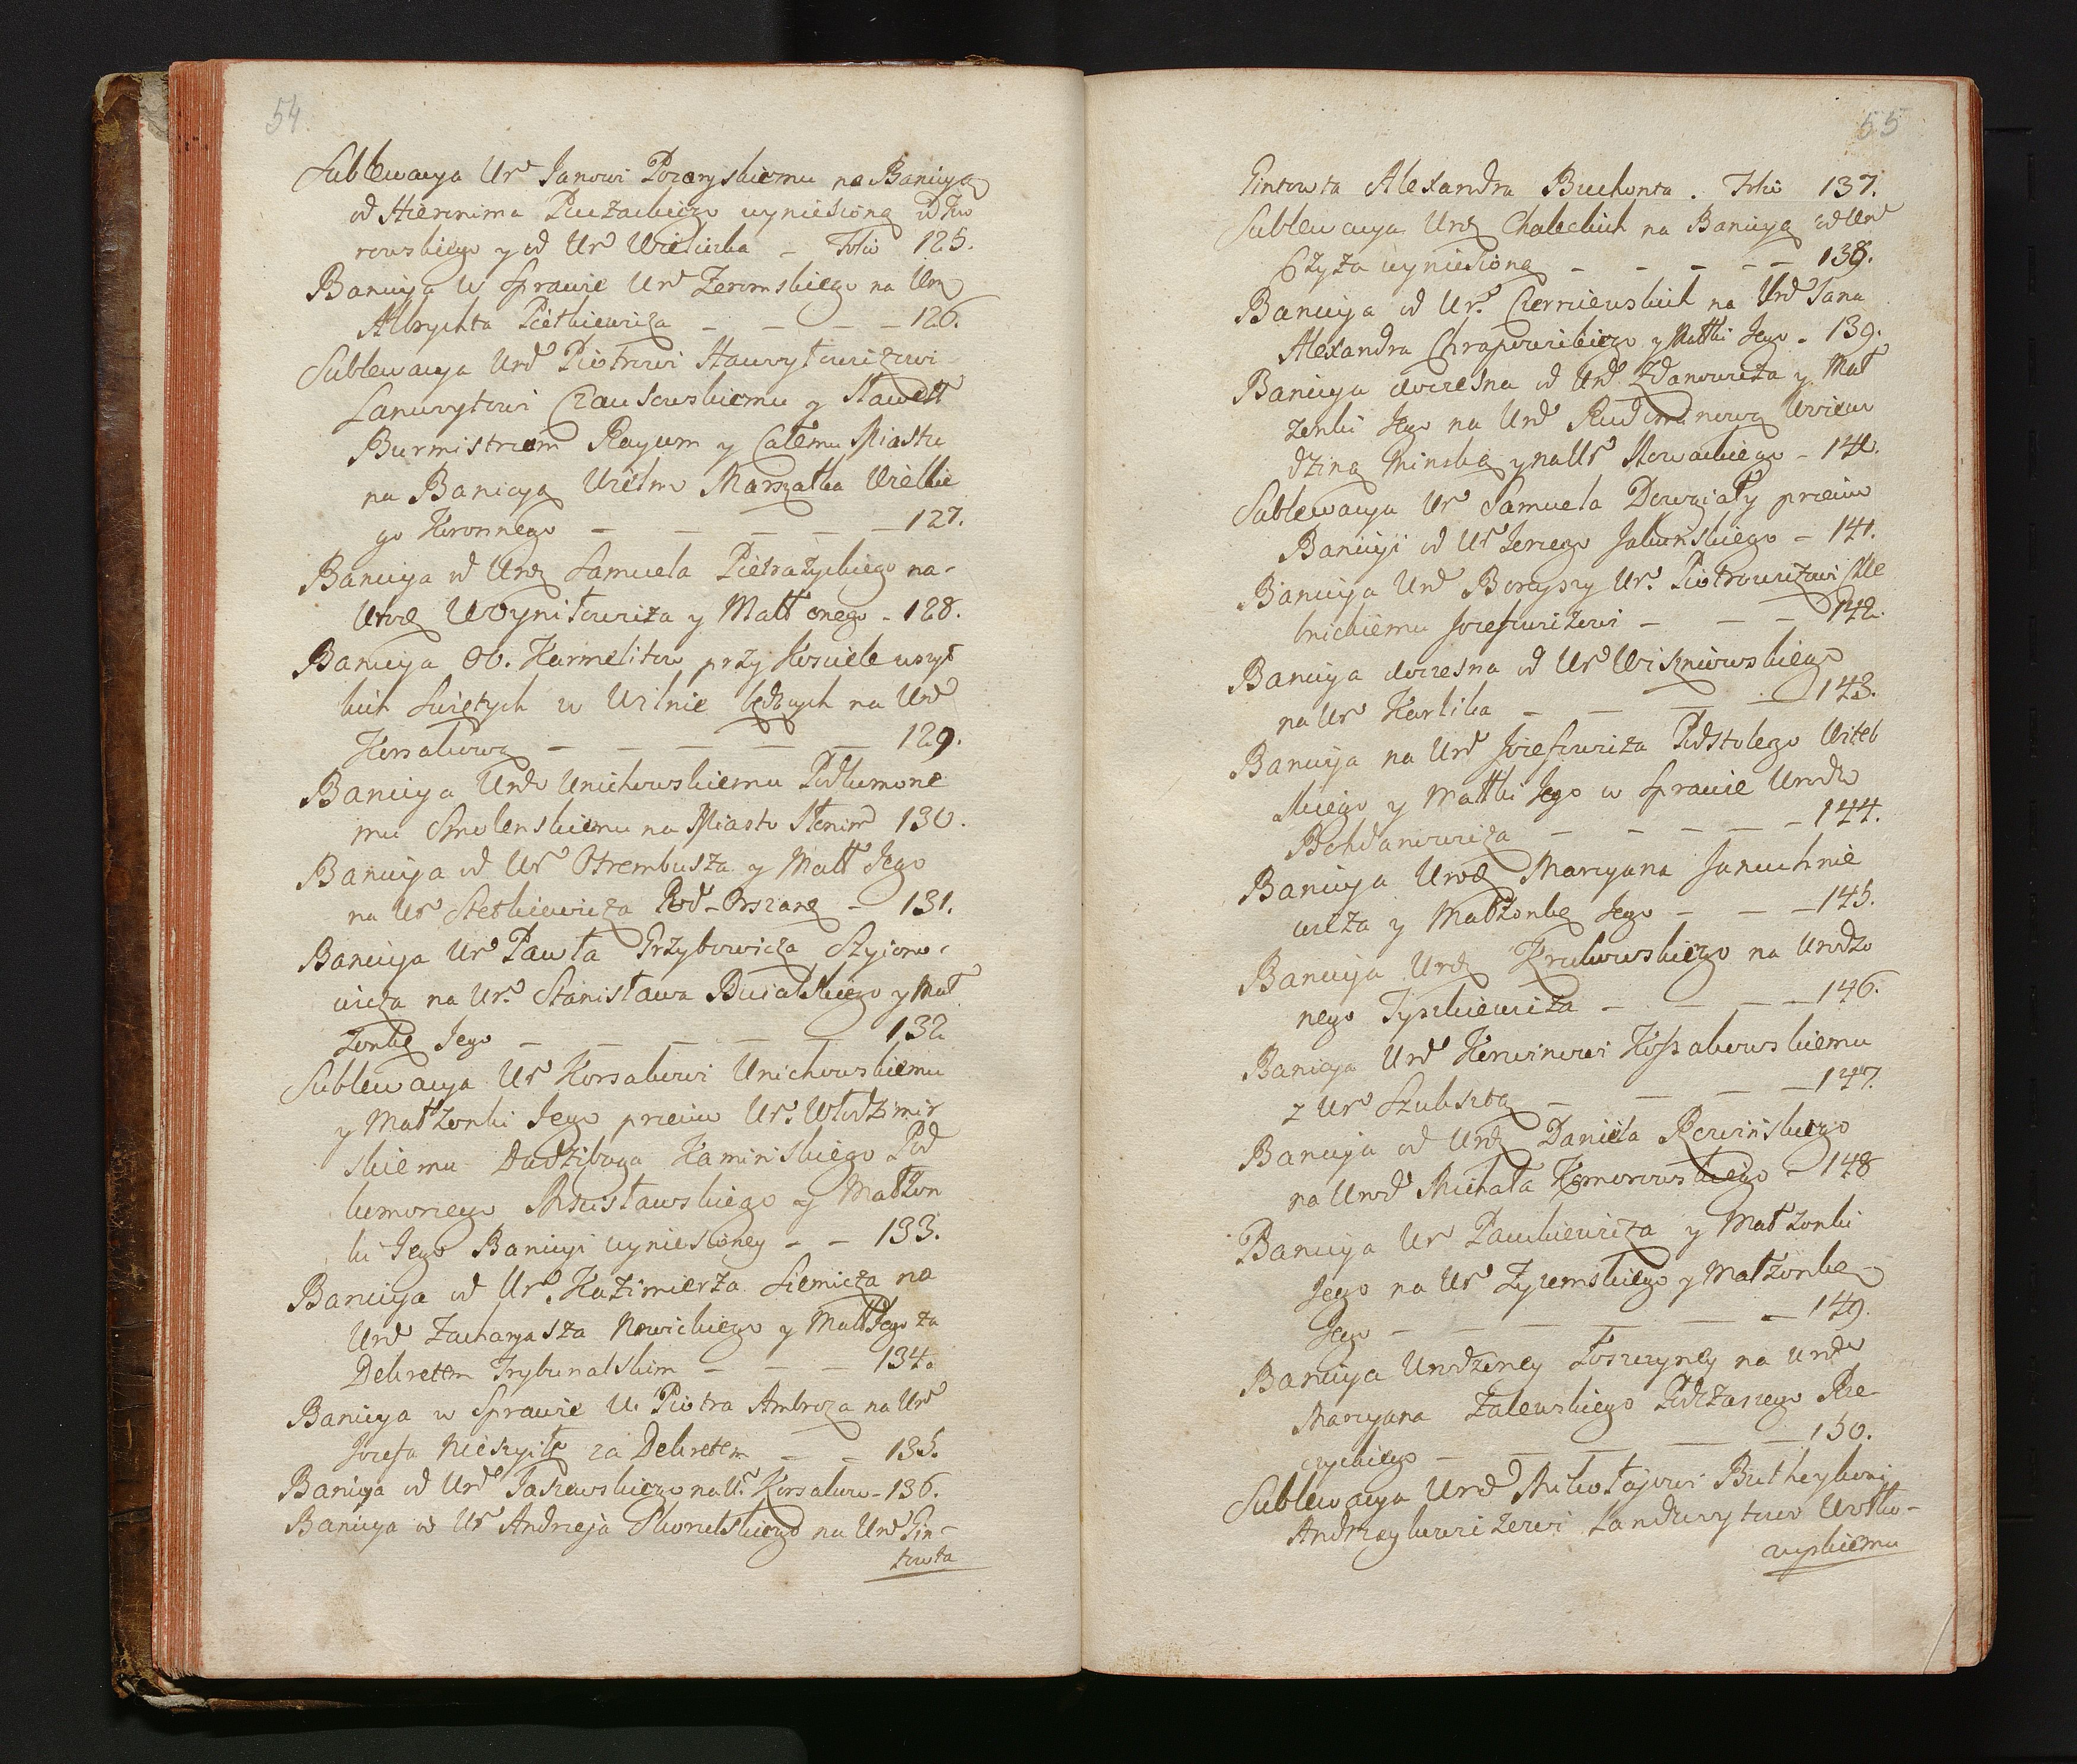 54.
Sublewacya Ur Janowi Pozaryskiemu na Banicyą
od Hieronima Puzackiego wyniesioną od Kro
rowskiego y od Ur Wieliczka – Folio 125.
Banicya w Sprawie Ur Zeromskiego na Ur
Albrychta Pietkiewicza – – – – 126.
Sublewacya Urd Piotrowi Hawryłowiczowi
Lanwytowi Czausowskiemu y Sławett
Burmistrzom Raycom y Całemu Miastu
na Banicyą Wielmo Marszałka Wielkie
go Koronnego – – – – – 127.
Banicya od Uro Samuela Pietrazyckiego na
Uro Woyniłowicza y Małż onego – 128.
Banicya OO. Karmelitow przy Kosciele wszyt
kich Swiętych w Wilnie będących na Urd
Korsakową – – – – – 129.
Banicya Urdo Unichowskiemu Podkomorze
mu Smolenskiemu na Miasto Słonim 130.
Banicya od Ur Otrembusza y Małż Jego
na Ur Stetkiewicza Pod-Orszanę – 131.
Banicya Ur Pawła Przybowicza Szyiono-
wicza na Ur. Stanisława Bucatskiego y Mał
zonkę Jego – – – – – 132
Sublewacya Ur Korsakowi Unichowskiemu
y Małżonki Jego przeciw Ur. Włodzimir
skiemu Dadziboga Kaminskiego Pod
komorzego Mscisławskiego y Małżon
ki Jego Banicyi wyniesioney – – 133.
Banicya od Ur. Kazimierza Siemicza na
Urd Zacharyasza Nowickiego y Małż Jego za
Dekretem Trybunalskim – – – 134.
Banicya w Sprawie U. Piotra Ambroza na Ur
Jozefa Nieszyitę za Dekretem – – 135.
Banicya od Urd Taszewskiego na U. Korsakow – 136.
Banicya od Ur Andrzeja Skoretskiego na Urd Gin-
towta
55
Gintowta Alexandra Buchonta. Folio 137.
Sublewacya Urd Chaleckich na Banicyą od Urd
Czyża wyniesioną – – – – – 138.
Banicya od Ur. Czerniewskich na Urd Jana
Alexandra Chrapowickiego y Małki Jego – 139.
Banicya doczesna od Urd Zdanowicza y Mał
zonki Jego na Urd Rudominową Woiewo
dziną Minską y na Ur Nowackiego – 140.
Sublewacya Ur Samuela Dowgiały przeciw
Banicyi od Ur Jerzego Jakunskiego – 141.
Banicya Urd Borzyszy Ur. Piotrowiczowi Kle
bnickiemu Jozefowiczowi – – – 142.
Banicya doczesna od Ur Wiszniowskiego
na Ur Karlika – – – – 143.
Banicya na Urd Jozefowicza Podstolego Witeb
skiego y Małki Jego w Sprawie Urodzo
Bohdanowicza – – – – – 144.
Banicya Urod Maryana Januchnie
wicza y Małżonkę Jego – – – 145.
Banicya Urd Krukowskiego na Urodzo
nego Tyszkiewicza – – – – 146.
Banicya Urd Korwinowi Kossakowskiemu
z Ur Szukszta – – – – 147.
Banicya od Urd Daniela Rowinskiego
na Urod Michała Komorowskiego – 148
Banicya Ur Pawkiewicza y Małżonki
Jego na Ur Zyzemskiego y Małżonkę
Jego – – – – – – 149.
Banicya Urodzoney Łoszczyney na Urodz
Maryana Zalewskiego Podczaszego Rze-
czyckiego – – – – – 150.
Sublewacya Urod Mikołajowi Butheykowi
Andrzeykowiczowi Landwytowi Wołko-
wyskiemu